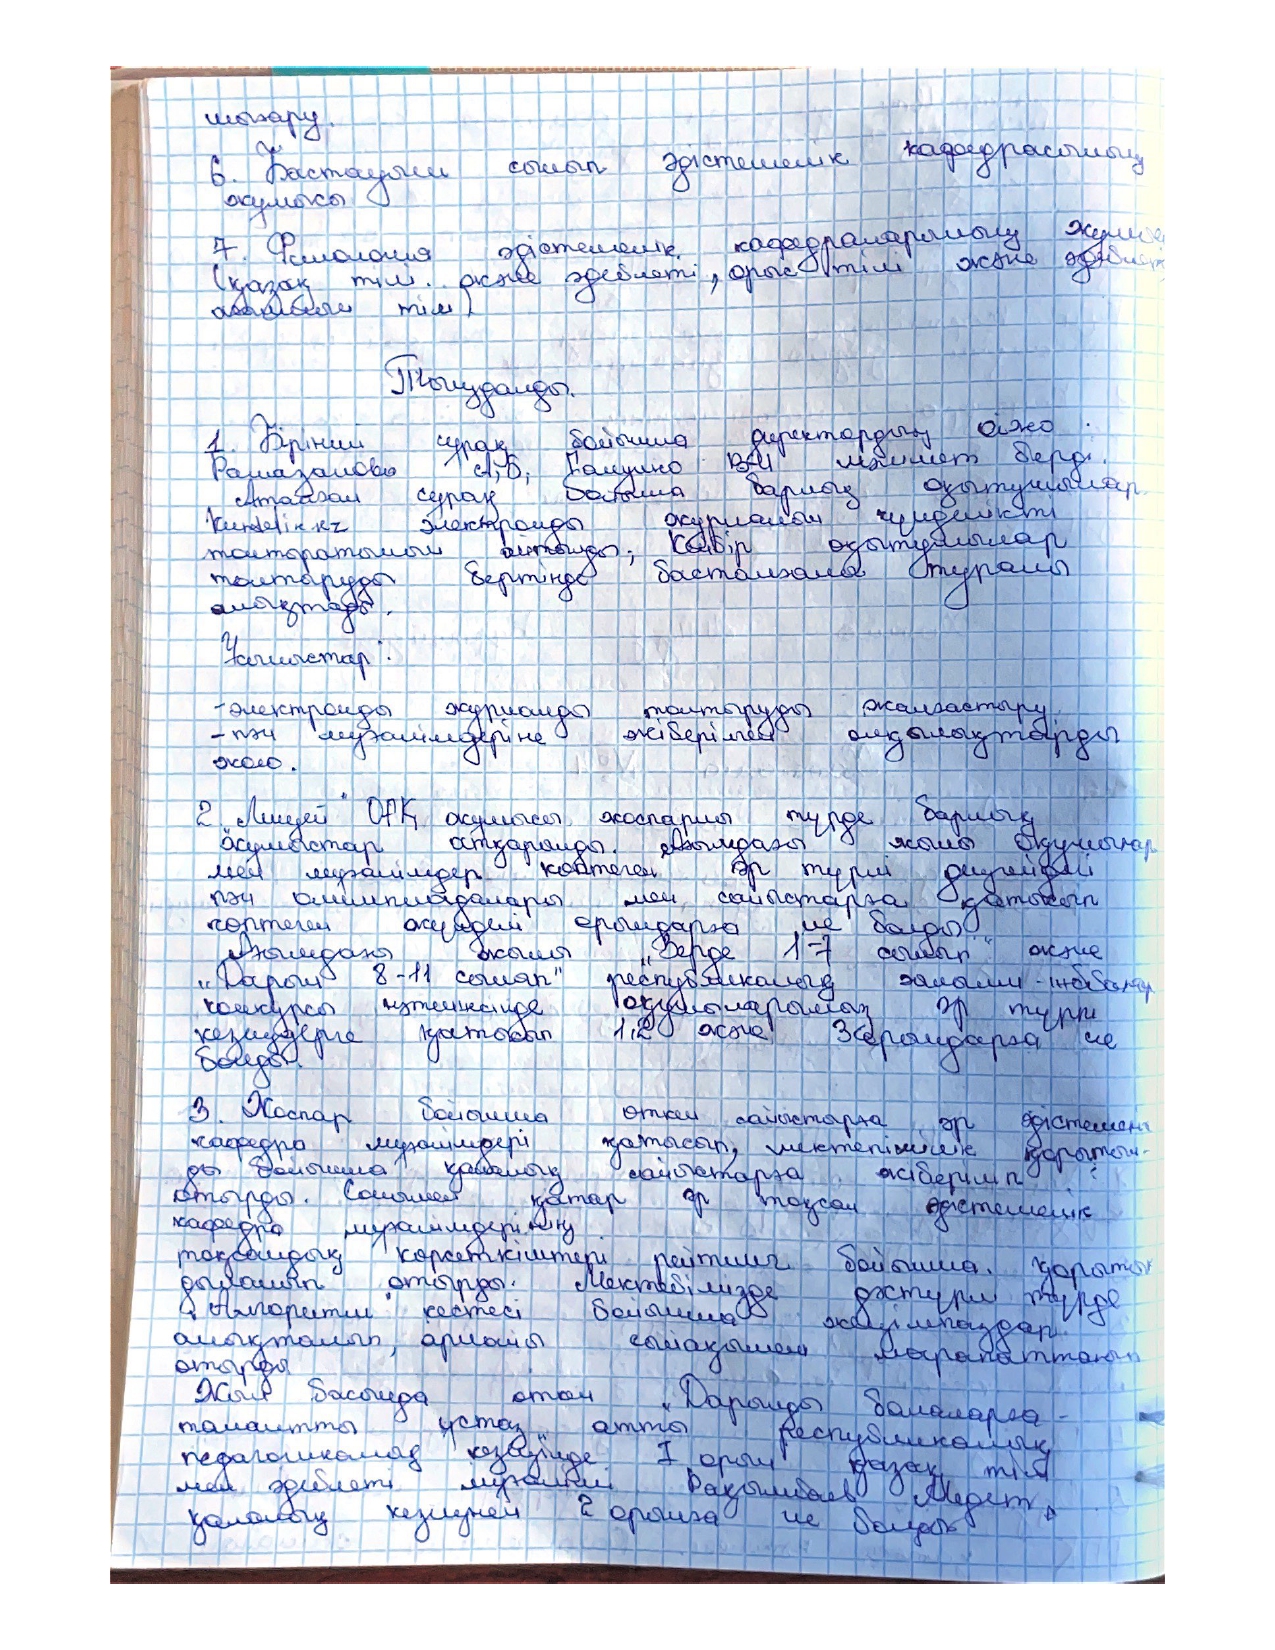 шығару.
6. Бастауыш сынып әдістемелік кафедрасының
жұмысы
7. Филология әдістемелік кафедраларының жұмысы
(қазақ тілі және әдебиеті, орыс тілі және әдебиеті
ағылшын тілі)
Тыңдалды.
1. Бірінші сұрақ бойынша директордың оіжо
Рамазанова А,Б, Галушко В.И мәлімет берді.
Аталған сұрақ бойынша барлық оқытушылар
kundelik.kz электронды журналын күнделікті
толтыратынын айтылды, Кейбір оқытушылар
толтыруды бертінде бастағаны туралы
анықтады.
Ұсыныстар:
-электронды журналды толтыруды жалғастыру
-пән мұғалімдеріне жіберілген олқылықтарды
жою.
2. Лицей ОҒҚ жұмысы жоспарлы түрде барлық
жұмыстар атқарылды. Ағымдағы жылы оқушылар
мен мұғалімдер көптеген әр түрлі деңгейдегі
пән олимпиадалары мен сайыстарға қатысып
көптеген жүлделі орындарға ие болды
Ағымдағы жылы „Зерде 1-7 сынып" және
„Дарын 8-11 сынып" республикалық ғылыми-жобалар
конкурсы нәтижесінде оқушыларымыз әр түрлі
кезеңдерге қатысып 1,2 және 3 орындарға ие
болды.
3. Жоспар бойынша өткен сайыстарға әр әдістемелік
кафедра мұғалімдері қатысып, мектепішілік қорытын-
ды бойынша қалалық сайыстарға жіберіліп
отырды. Сонымен қатар әр тоқсан әдістемелік
кафедра мұғалімдерінің
тоқсандық көрсеткіштері рейтинг бойынша қорытын
дыланып отырды. Мектебімізде дәстүрлі түрде
„Алгоритм" кестесі бойынша жеңімпаздар
анықталып, арнайы сыйақымен марапатталып
отырды
Жыл басында өткен „Дарынды балаларға-
талантты ұстаз" атты республикалық
педагогикалық кезеңінде I орын қазақ тілі
мен әдебиеті мұғалімі Рақымбаев Медет,
қалалық кезеңнен 2 орынға ие болды